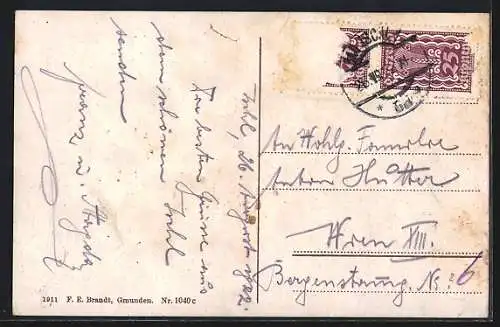 Ischl, 26. August 1922.
Die besten Grüsse aus
dem schönen Ischl
senden
Franz u.
An Wohlg. Familie
Anton Hütter
Wien XIII.
No 26
25
1911 F. E. Brandt, Gmunden. Nr. 1040 c